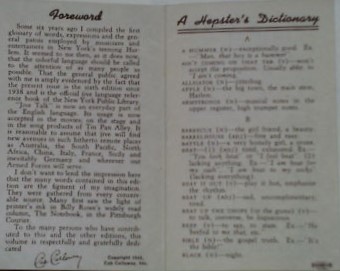 Foreword
Some six years ago I compiled the first
glossary of words, expressions and the gen-
eral patois employed by musicians and
entertainers in New York's teeming Har-
lem. It seemed to me then, as it does now,
that the colorful language should be called
to the attention of as many people as
possible. That the general public agreed
with me is amply evidenced by the fact that
the present issue is the sixth edition since
1938 and is the official jive language refer-
ence book of the New York Public Library.
"Jive Talk" is now an everyday part of
the English language. Its usage is now
accepted in the movies, on the stage and
in the song products of Tin Pan Alley. It
is reasonable to assume that jive will find
new avenues in such hitherto remote places
as Australia, the South Pacific, North
Africa, China, Italy, France, Sicily and
inevitably Germany and wherever our
Armed Forces will serve.
I don't want to lend the impression here
that the many words contained in this edi-
tion are the figment of my imagination.
They were gathered from every conceiv-
able source. Many first saw the light of
printer's ink in Billy Rowe's widely read
column, The Notebook, in the Pittsburgh
Courier.
To the many persons who have contrib-
uted to this and the other editions, this
volume is respectfully and gratefully dedi-
cated.
Cab Calloway
Copyright
Cab Calloway, Inc.
A Hepster's Dictionary
A
A HUMMER (n.)—exceptionally good. Ex.
"Man, that boy is a hummer."
AIN'T COMING ON THAT TAB (v.)—won't
accept the proposition. Usually abbr. to
"I ain't coming."
ALLIGATOR (n.)—jitterbug.
APPLE (n.)—the big town, the main
stem, Harlem.
ARMSTRONGS (n.)—musical notes in the
upper register, high trumpet notes.
B
BARBECUE (n.)—the girl friend, a beauty.
BARRELHOUSE (adj.)—free and easy.
BATTLE (n.)—a very homely girl, a crone.
BEAT (adj.)
"You look beat" or "I just beat"
lacking anything. Ex. "I am beat for
my cash", "I am beat to my socks"
(lacking everything).
BEAT IT OUT (v.)—play it hot, emphasize
the rhythm.
BEAT UP (adj.)—sad, uncomplimentary,
tired.
BEAT UP THE CHOPS (or the gums) (v.)—
to talk, converse, be loquacious.
BEEF (v.)—to say, to state. Ex. "He
beefed to me that, etc."
BIBLE (n.)—the gospel truth. Ex. "It's
the bible!"
BLACK (n.)—night.